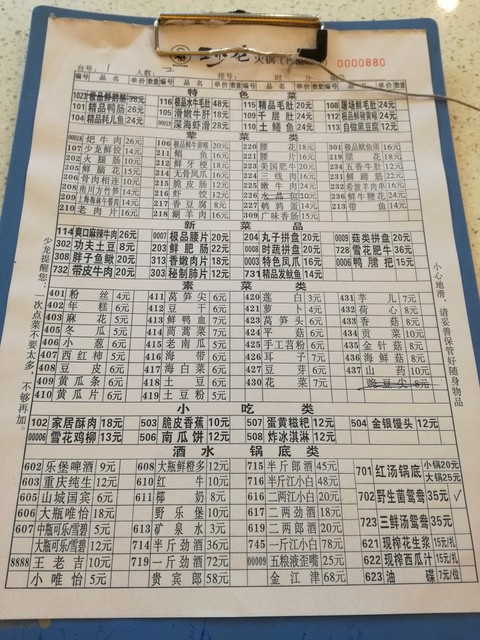 少龙 火锅 0000880
台号: 人数: 时 分
编号 品名 单价 数量 编号 品名 单价 数量 编号 品名 单价 数量 编号 品名 单价 数量
特色菜
116 极品水牛肚 48元 115 精品毛肚 20元 108 屠场鲜毛肚 24元
101 精品鸭肠 26元 105 滑嫩牛肝 18元 109 千层肚 24元
104 精品耗儿鱼 24元 深海虾滑 28元 110 土鳝鱼 24元 113 自做黑豆腐 12元
荤菜类
炬牛肉 26元 220 腰花 18元
107 少龙鲜饺 14元 211 鲌鱼 16元 221 腰片 16元 219 脑花 18元
202 火腿肠 10元 212 鲜牙梗 18元 222 美国肥牛 20元
205 鲜脑花 15元 214 无骨凤爪 16元 224 三线肉 16元 231 鲜鹅肠 22元
206 骨肉相连 10元 215 脆皮肠 12元 225 嫩牛肉 24元
208 南川方竹笋 14元 216 虾饺 12元 226 水晶包 10元
217 香豆腐 8元 227 鹌鹑蛋 10元
210 老肉片 16元 218 涮羊肉 16元 309 广味香肠 15元 213 带鱼 16元
新菜品
114 爽口麻辣牛肉 26元 0007 极品腰片 20元 204 丸子拼盘 20元 0009 菇类拼盘 20元
302 功夫土豆 8元 203 鲜肥肠 22元 0008 时蔬拼盘 20元 728 雪花肥牛 36元
308 胖子鱼鳅 20元 313 香嫩肉片 18元 0003 特色凤爪 16元 0006 鸭脷把 15元
732 带皮牛肉 20元 303 秘制肺片 12元 731 精品发鱿鱼 14元
素菜类
401 粉丝 4元 411 莴笋尖 6元 420 莲白 3元 431 芋儿 7元
402 年糕 6元 412 豆干 6元 421 萝卜 4元 432 荷心 8元
403 麻花 5元 413 鲜鸭血 7元 423 莴笋头 6元 433 香菇 8元
405 冬瓜 5元 414 茼蒿菜 7元 424 平菇 6元 434 香菜 10元
406 小葱 6元 415 老南瓜 5元 425 手工苕粉 6元 435 金针菇 8元
407 西红柿 5元 416 海带 6元 426 耳子 7元 436 海鲜菇 8元
408 豆皮 6元 417 海白菜 6元 427 豆芽 6元 437 山药 10元
409 黄瓜条 6元 418 土豆 6元 430 花菜 7元 豌豆尖 8元
410 黄瓜片 6元 419 土豆粉 5元
小吃类
102 家居酥肉 18元 503 脆皮香蕉 10元 507 蛋黄糍粑 12元 504 金银馒头 12元
00006 雪花鸡柳 13元 506 南瓜饼 12元 508 炸冰淇淋 12元
酒水 锅底类
602 乐堡啤酒 9元 608 大瓶鲜橙多 12元 715 半斤郎酒 45元 701 红汤锅底 小锅20元 大锅25元
603 重庆纯生 12元 610 红牛 10元 716 半斤江小白 48元
605 山城国宾 6元 611 椰奶 8元 616 二两江小白 20元 702 野生菌鸳鸯 35元 ✓
606 大瓶唯怡 18元 野乐堡 10元 617 二两劲酒 18元 723 三鲜汤鸳鸯 35元
607 中瓶可乐/雪碧 5元 613 矿泉水 3元 619 二两郎酒 20元
大瓶可乐/雪碧 12元 714 半斤劲酒 36元 745 一斤江小白 78元 621 现榨花生浆 15元/扎
8888 王老吉 10元 719 一斤劲酒 72元 00009 五粮液歪嘴 25元 622 现榨西瓜汁 15元/扎
小唯怡 5元 贵宾郎 58元 金江津 68元 623 油碟 7元/位
少龙提醒您:一次点菜不要太多,不够再加。
小心地滑,请妥善保管好随身物品